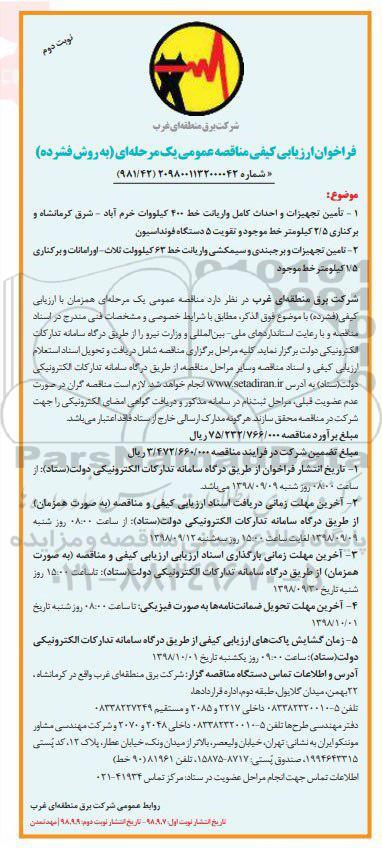 نوبت دوم
شرکت برق منطقه‌ای غرب
فراخوان ارزیابی کیفی مناقصه عمومی یک مرحله‌ای (به روش فشرده)
« شماره ۲۰۹۸۰۰۱۱۳۲۰۰۰۰۴۲ (۹۸۱/۴۲)
موضوع:
۱- تأمین تجهیزات و احداث کامل واریانت خط ۴۰۰ کیلووات خرم آباد - شرق کرمانشاه و
برکناری ۲/۵ کیلومتر خط موجود و تقویت ۵ دستگاه فونداسیون
۲- تامین تجهیزات و برجبندی و سیمکشی واریانت خط ۶۳ کیلوولت ثلاث-اورامانات و برکناری
۱/۵ کیلومتر خط موجود
شرکت برق منطقه‌ای غرب در نظر دارد مناقصه عمومی یک مرحله‌ای همزمان با ارزیابی
کیفی(فشرده) با موضوع فوق الذکر، مطابق با شرایط خصوصی و مشخصات فنی مندرج در اسناد
مناقصه و با رعایت استانداردهای ملی- بین‌المللی و وزارت نیرو را از طریق درگاه سامانه تدارکات
الکترونیکی دولت برگزار نماید. کلیه مراحل برگزاری مناقصه شامل دریافت و تحویل اسناد استعلام
ارزیابی کیفی و اسناد مناقصه وسایر مراحل مناقصه، از طریق درگاه سامانه تدارکات الکترونیکی
دولت(ستاد) به آدرس www.setadiran.ir انجام خواهد شد. لازم است مناقصه گران در صورت
عدم عضویت قبلی، مراحل ثبت‌نام در سامانه مذکور و دریافت گواهی امضای الکترونیکی را جهت
شرکت در مناقصه محقق سازند. هر گونه مدارک ارسالی خارج از ستاد فاقد اعتبار می‌باشد.
مبلغ برآورد مناقصه ۷۵/۲۳۳/۷۶۶/۰۰۰ ریال
مبلغ تضمین شرکت در فرایند مناقصه ۳/۴۷۳/۶۶۰/۰۰۰ ریال
۱- تاریخ انتشار فراخوان از طریق درگاه سامانه تدارکات الکترونیکی دولت(ستاد): از
ساعت ۰۸:۰۰ روز شنبه ۱۳۹۸/۰۹/۰۹ می‌باشد.
۲- آخرین مهلت زمانی دریافت اسناد ارزیابی کیفی و مناقصه (به صورت همزمان)
از طریق درگاه سامانه تدارکات الکترونیکی دولت(ستاد): از ساعت ۰۸:۰۰ روز شنبه
۱۳۹۸/۰۹/۰۹ لغایت ساعت ۱۵:۰۰ روز سه‌شنبه ۱۳۹۸/۰۹/۱۲
۳- آخرین مهلت زمانی بارگذاری اسناد ارزیابی ارزیابی کیفی و مناقصه (به صورت
همزمان) از طریق درگاه سامانه تدارکات الکترونیکی دولت(ستاد): تاساعت ۱۵:۰۰ روز
شنبه تاریخ ۱۳۹۸/۰۹/۳۰
۴- آخرین مهلت تحویل ضمانت‌نامه‌ها به صورت فیزیکی: تا ساعت ۰۸:۰۰ روز شنبه تاریخ
۱۳۹۸/۱۰/۰۱
۵- زمان گشایش پاکت‌های ارزیابی کیفی از طریق درگاه سامانه تدارکات الکترونیکی
دولت(ستاد): ساعت ۰۹:۰۰ روز یکشنبه تاریخ ۱۳۹۸/۱۰/۰۱
آدرس و اطلاعات تماس دستگاه مناقصه گزار: شرکت برق منطقه‌ای غرب واقع در کرمانشاه،
۲۲بهمن، میدان گلایول، طبقه دوم، اداره قراردادها،
تلفن ۵-۰۸۳۳۸۲۳۲۰۰۱ داخلی ۲۲۱۷ و ۲۰۸۵ و مستقیم ۰۸۳۳۸۲۲۷۲۴۹
دفتر مهندسی طرح‌ها تلفن ۵-۰۸۳۳۸۲۳۲۰۰۱ داخلی ۲۰۴۸ و ۲۰۷۰ و شرکت مهندسی مشاور
موننکو ایران به نشانی: تهران، خیابان ولیعصر، بالاتر از میدان ونک، خیابان عطار، پلاک ۱۲، کد پُستی
۱۹۹۴۶۴۳۳۱۵، صندوق پُستی: ۸۷۱۷-۱۵۸۷۵، تلفن ۸۱۹۶۱ (۹۰ خط)
اطلاعات تماس جهت انجام مراحل عضویت در ستاد: مرکز تماس ۴۱۹۳۴-۰۲۱
روابط عمومی شرکت برق منطقه‌ای غرب
تاریخ انتشار نوبت اول: ۹۸.۹.۷ - تاریخ انتشار نوبت دوم: ۹۸.۹.۹ | مهد تمدن